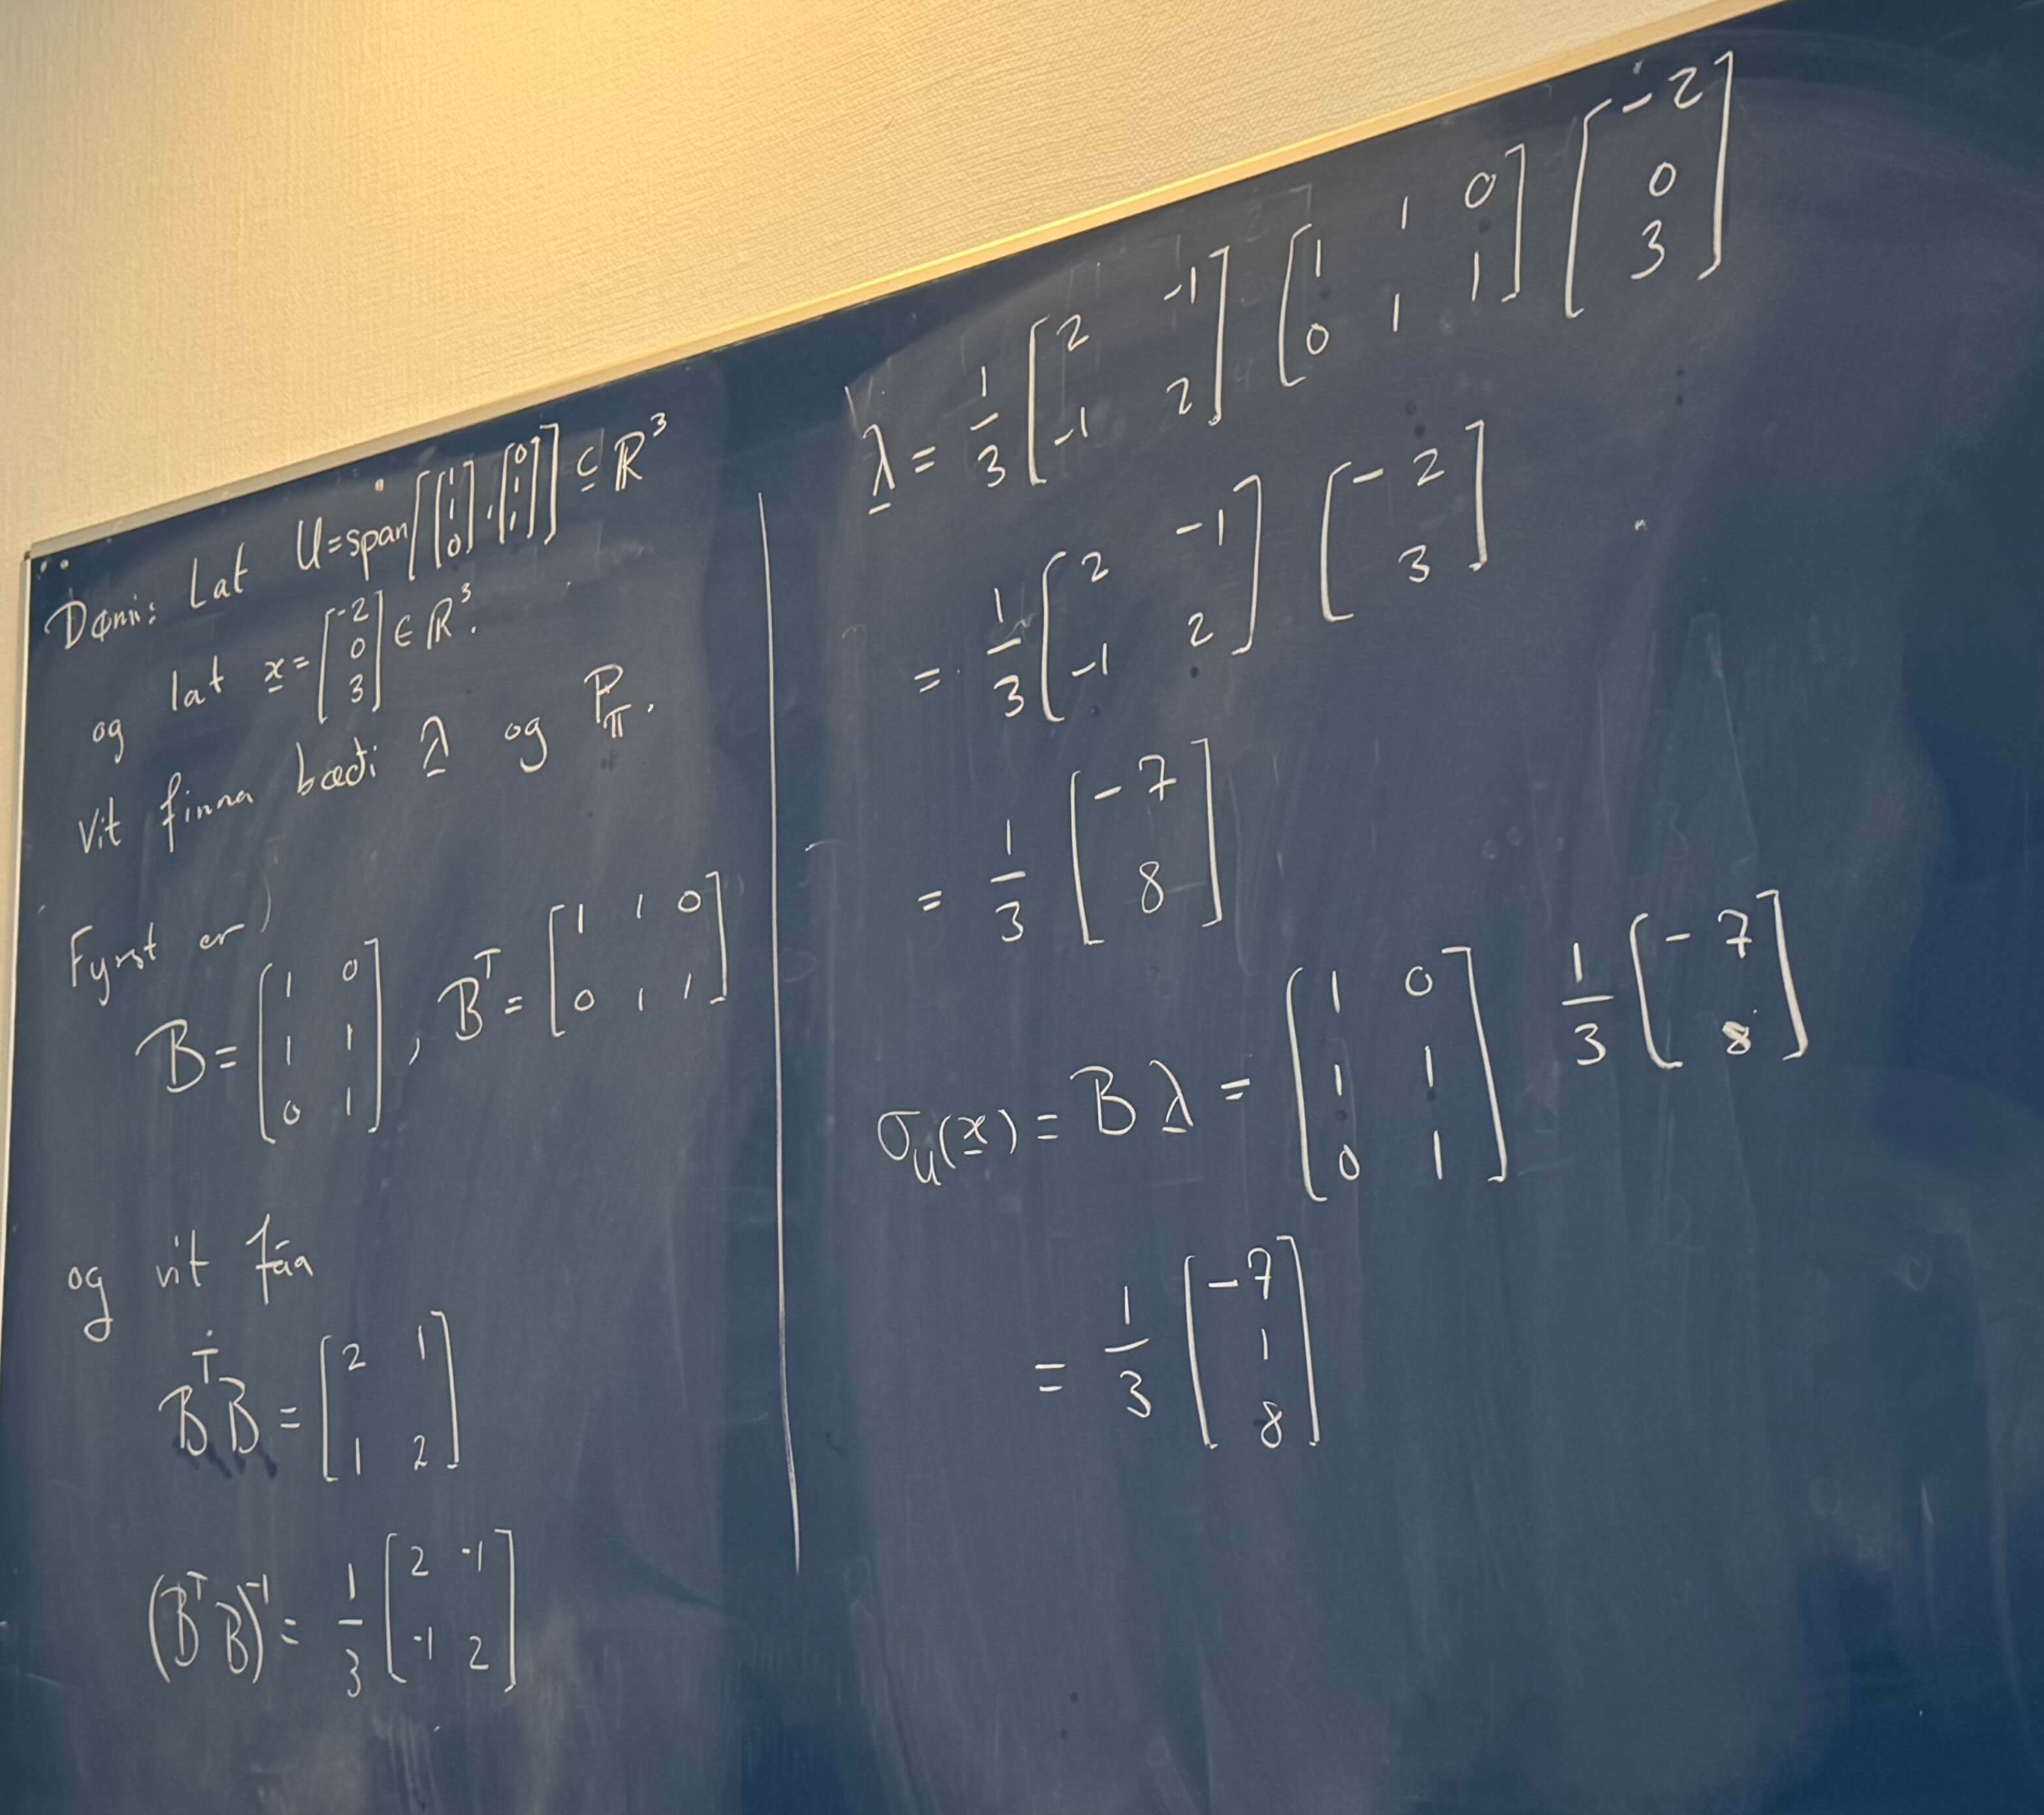 Dømi: Lat U=span[[1 1 0], [0 1 1]] ⊆ ℝ³
og lat x̲=[-2 0 3] ∈ ℝ³.
Vit finna bædi λ̲ og P_π.
Fyrst er
B=[1 0; 1 1; 0 1], Bᵀ=[1 1 0; 0 1 1]
og vit fáa
BᵀB=[2 1; 1 2]
(BᵀB)⁻¹= 1/3 [2 -1; -1 2]
λ̲ = 1/3 [2 -1; -1 2] [1 1 0; 0 1 1] [-2; 0; 3]
= 1/3 [2 -1; -1 2] [-2; 3]
= 1/3 [-7; 8]
σ_U(x̲) = Bλ̲ = [1 0; 1 1; 0 1] 1/3 [-7; 8]
= 1/3 [-7; 1; 8]